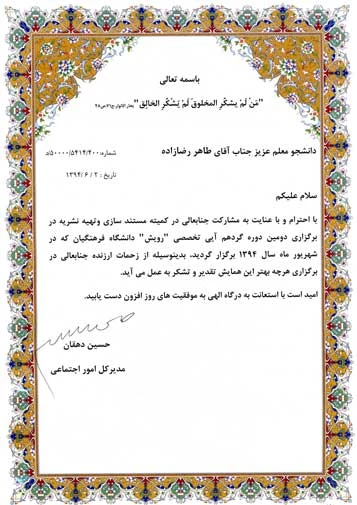 باسمه تعالی
"مَنْ لَمْ یشکُر المخلوقَ لَمْ یَشْکُرِ الخالِق" بحار الانوار ج۷۱ ص۴۵
شماره: ۵۰۰۰۰/۵۴۱۴/۴۰۰/د
دانشجو معلم عزیز جناب آقای طاهر رضازاده
تاریخ : ۱۳۹۴ / ۶ / ۲
سلام علیکم
با احترام و با عنایت به مشارکت جنابعالی در کمیته مستند سازی وتهیه نشریه در
برگزاری دومین دوره گردهم آیی تخصصی "رویش" دانشگاه فرهنگیان که در
شهریور ماه سال ۱۳۹۴ برگزار گردید، بدینوسیله از زحمات ارزنده جنابعالی در
برگزاری هرچه بهتر این همایش تقدیر و تشکر به عمل می آید.
امید است با استعانت به درگاه الهی به موفقیت های روز افزون دست یابید.
حسین دهقان
مدیرکل امور اجتماعی